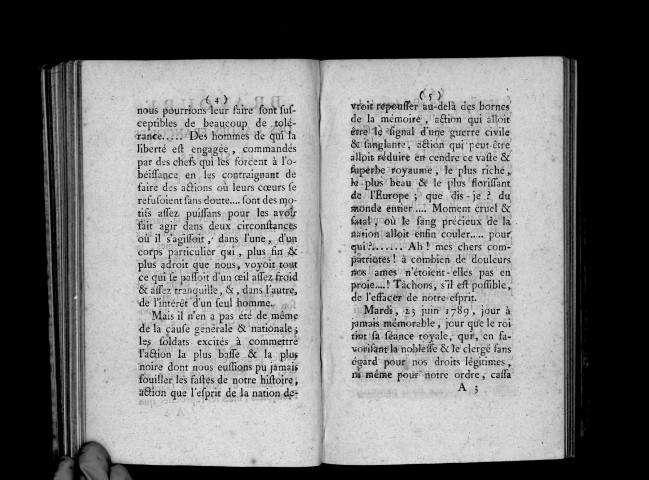 ( 4 )
nous pourrions leur faire ſont ſuſ-
ceptibles de beaucoup de tolé-
rance..... Des hommes de qui la
liberté eſt engagée, commandés
par des chefs qui les forcent à l'o-
béiſſance en les contraignant de
faire des actions où leurs cœurs ſe
refuſoient ſans doute.... ſont des mo-
tifs aſſez puiſſans pour les avoir
fait agir dans deux circonſtances
où il s'agiſſoit, dans l'une, d'un
corps particulier qui, plus fin &
plus adroit que nous, voyoit tout
ce qui ſe paſſoit d'un œil aſſez froid
& aſſez tranquille, &, dans l'autre,
de l'intérêt d'un ſeul homme.
Mais il n'en a pas été de même
de la cauſe générale & nationale;
les ſoldats excités à commettre
l'action la plus baſſe & la plus
noire dont nous euſſions pu jamais
ſouiller les faſtes de notre hiſtoire,
action que l'eſprit de la nation de-
( 5 )
vroit repouſſer au-delà des bornes
de la mémoire, action qui alloit
être le ſignal d'une guerre civile
& ſanglante, action qui peut-être
alloit réduire en cendre ce vaſte &
ſuperbe royaume, le plus riche,
le plus beau & le plus floriſſant
de l'Europe; que dis-je? du
monde entier.... Moment cruel &
fatal, où le ſang précieux de la
nation alloit enfin couler.... pour
qui?....... Ah! mes chers com-
patriotes! à combien de douleurs
nos ames n'étoient-elles pas en
proie....! Tâchons, s'il eſt poſſible,
de l'effacer de notre eſprit.
Mardi, 23 juin 1789, jour à
jamais mémorable, jour que le roi
tint ſa ſéance royale, qui, en fa-
voriſant la nobleſſe & le clergé ſans
égard pour nos droits légitimes,
ni même pour notre ordre, caſſa
A 3